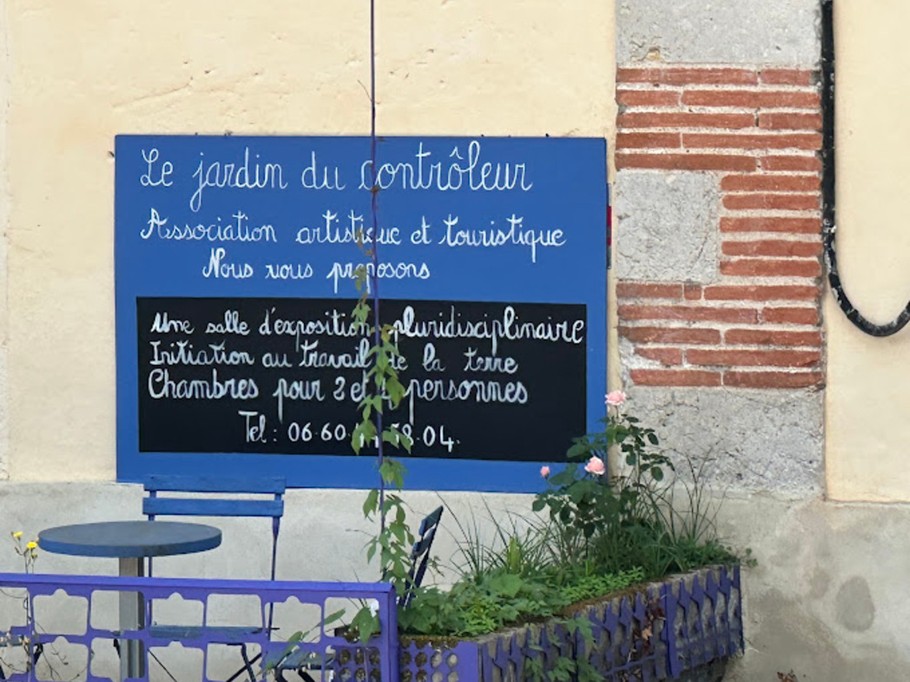 Le jardin du contrôleur
Association artistique et touristique
Nous vous proposons
Une salle d'exposition pluridisciplinaire
Initiation au travail de la terre
Chambres pour 2 et personnes
Tel : 06-60- 58-04.